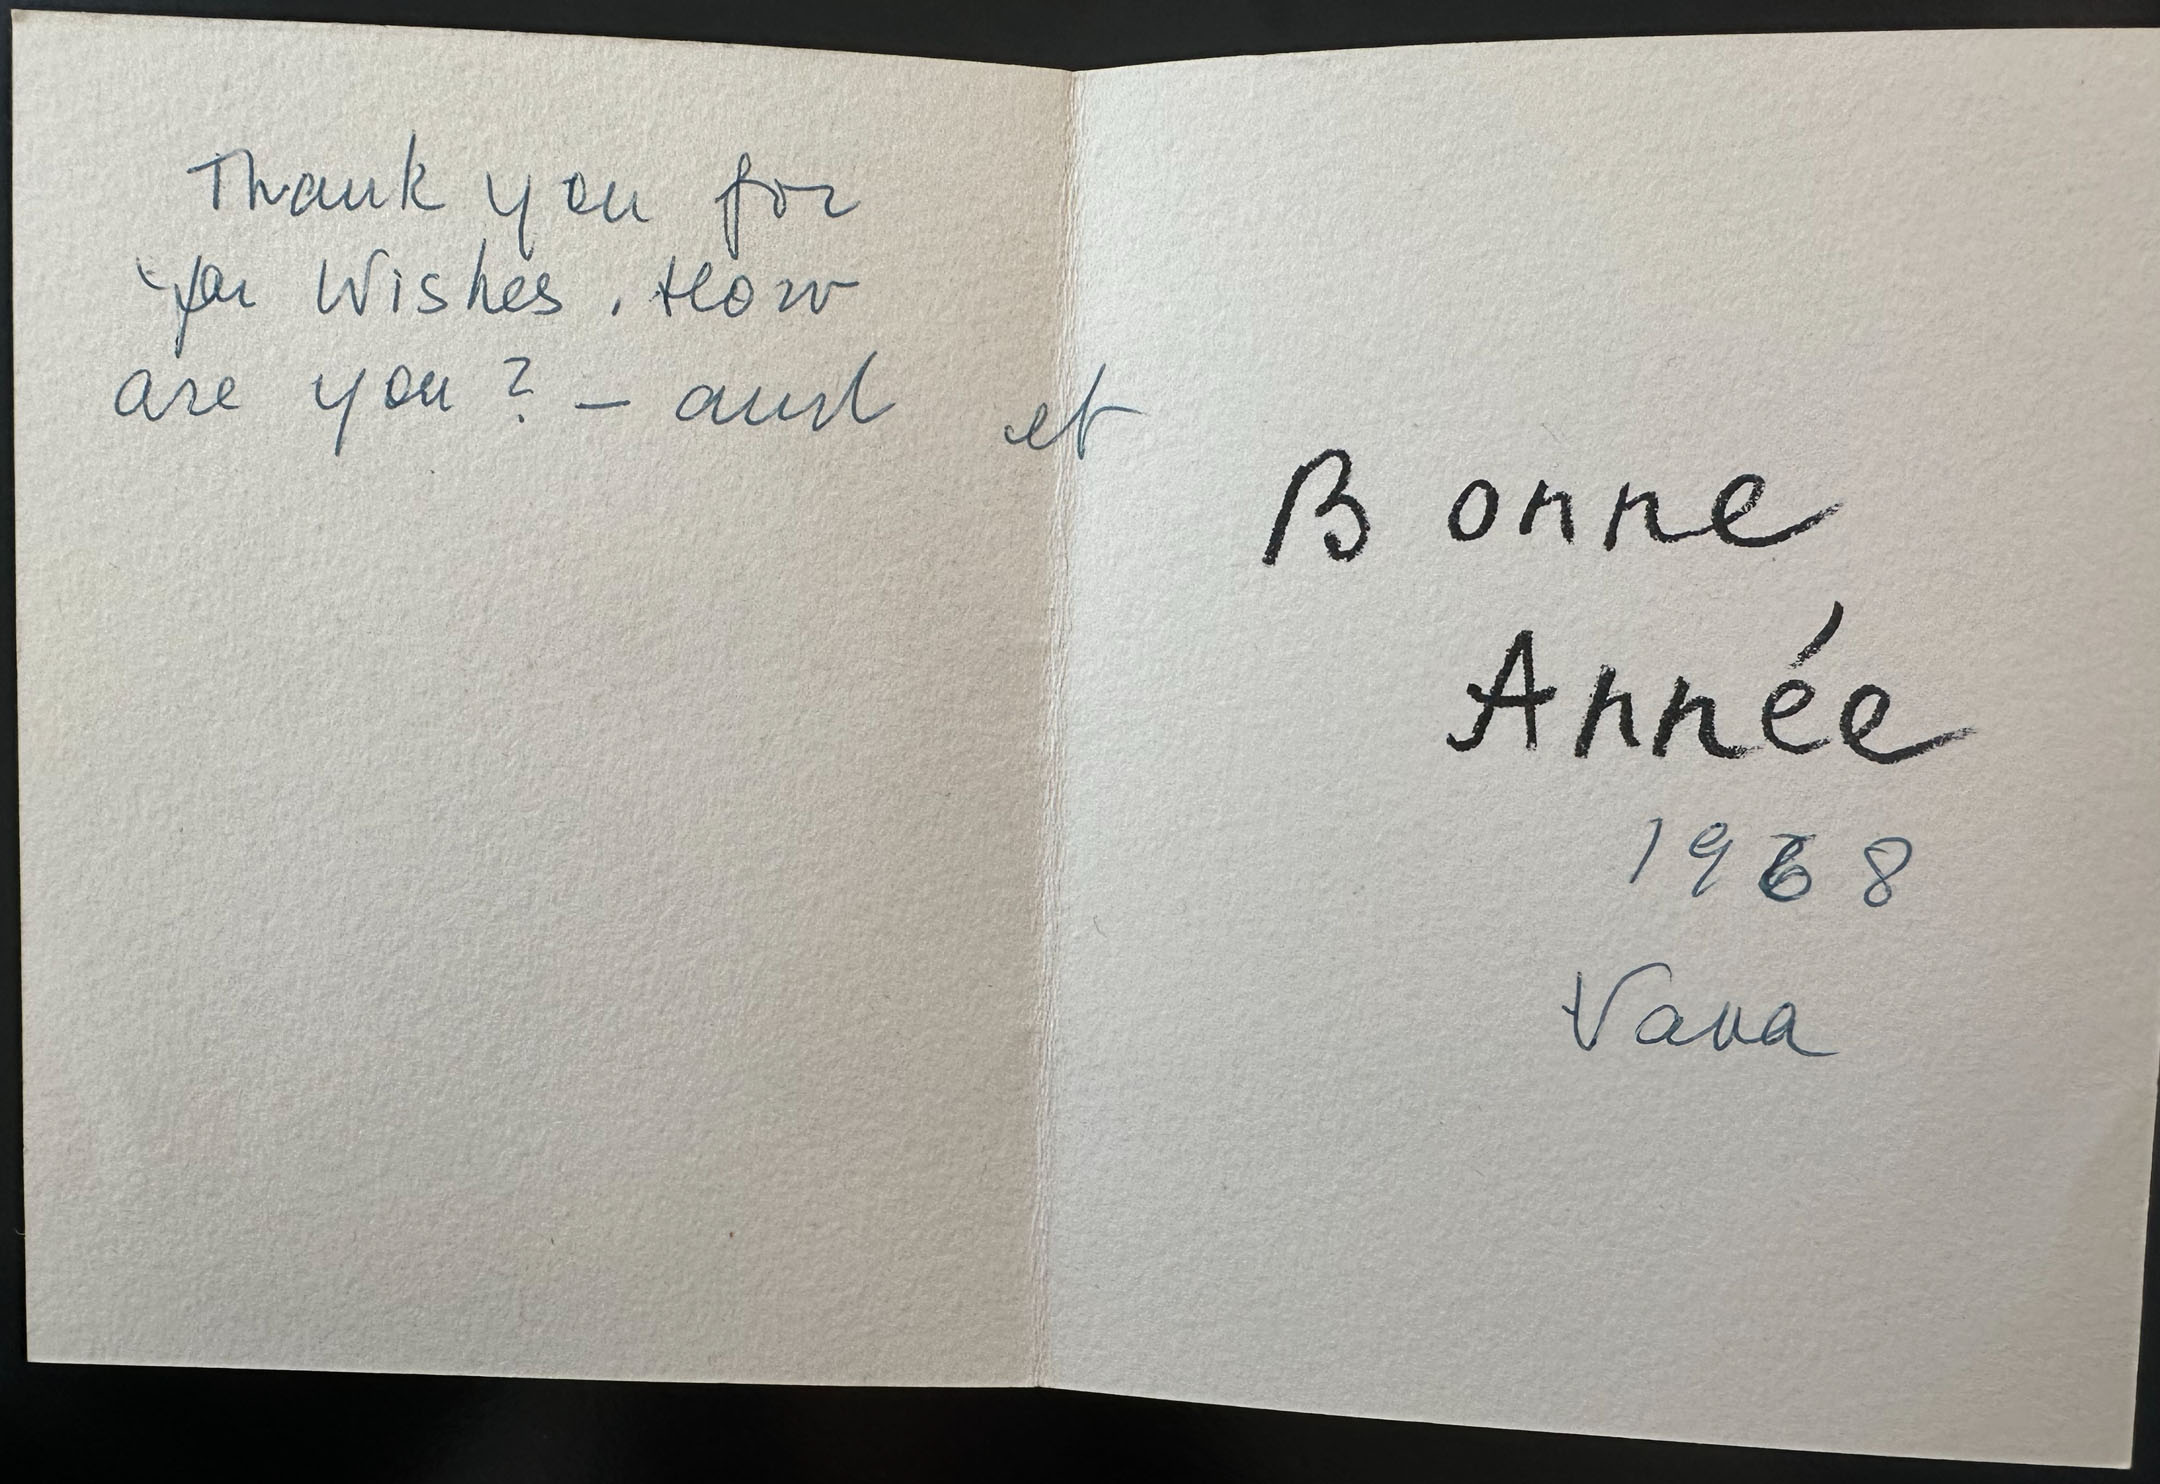 Thank you for
you Wishes. How
are you? – and et
Bonne
Année
1968
Vava